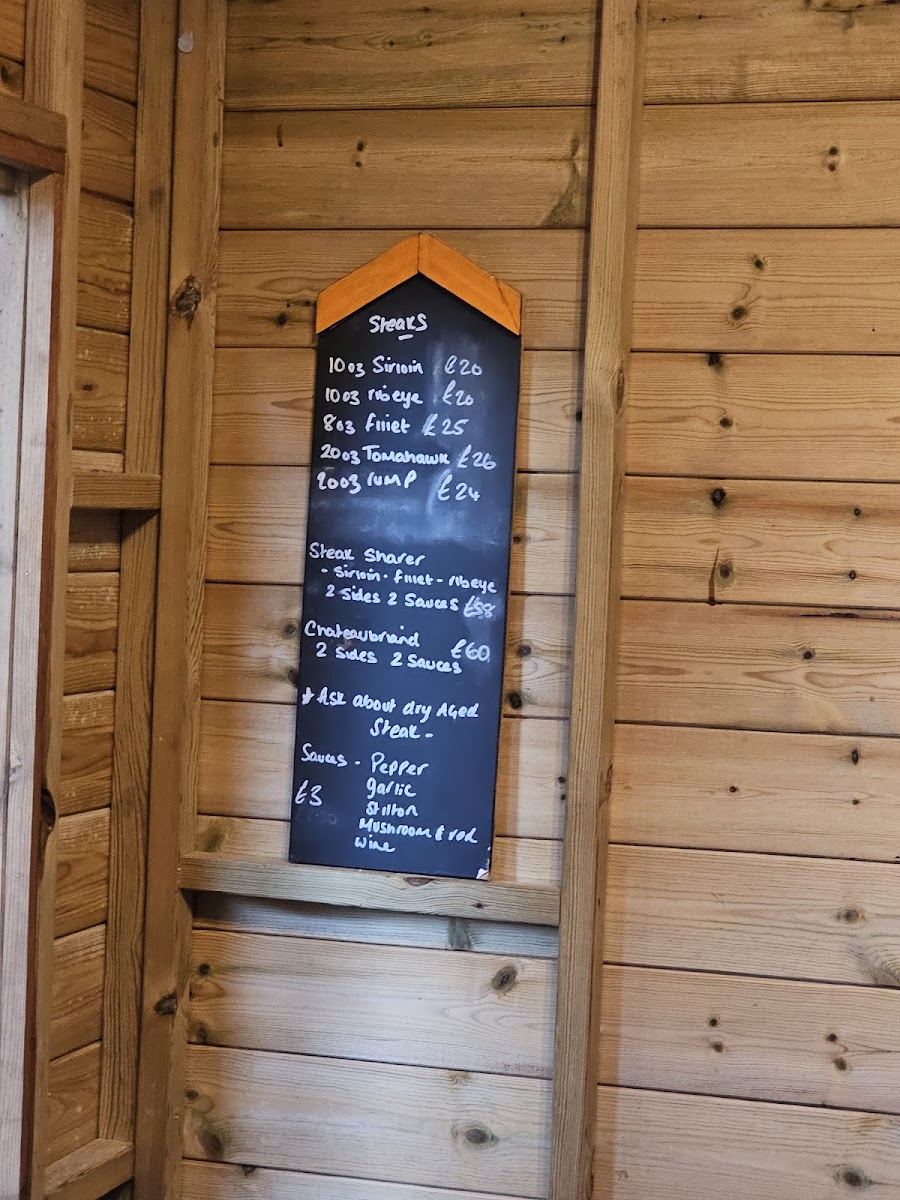 Steaks
10oz Sirloin £20
10oz ribeye £20
8oz fillet £25
20oz Tomahawk £26
20oz rump £24
Steak Sharer
- Sirloin - fillet - ribeye
2 Sides 2 Sauces £58
Chateaubriand £60
2 Sides 2 Sauces
* Ask about dry Aged
Steak -
Sauces - Pepper
garlic
£3 Stilton
Mushroom & red
wine